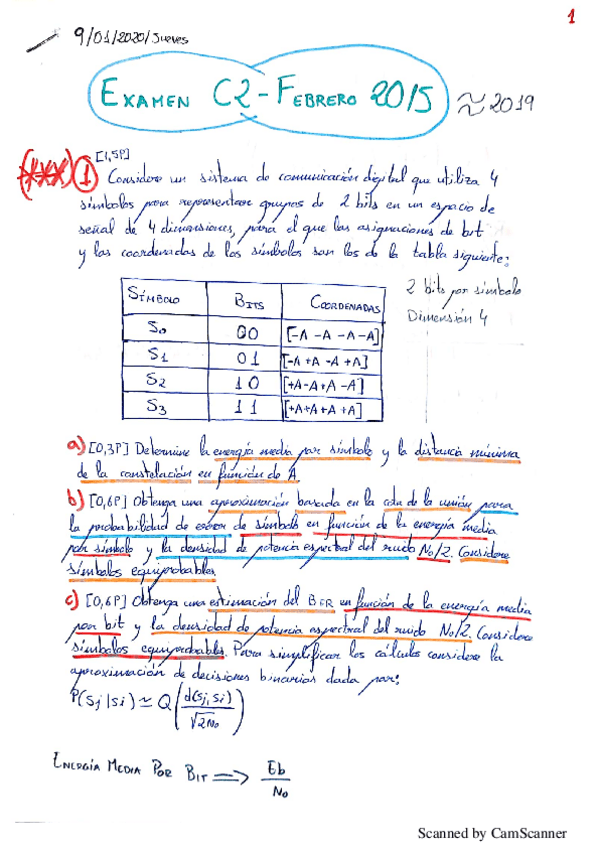 1
9/01/2020/Jueves
EXAMEN C2-FEBRERO 2015 ≈ 2019
[1,5P]
(***) 1 Considere un sistema de comunicación digital que utiliza 4
símbolos para representar grupos de 2 bits en un espacio de
señal de 4 dimensiones, para el que las asignaciones de bit
y las coordenadas de los símbolos son los de la tabla siguiente:
SÍMBOLO BITS COORDENADAS
S0 00 [-A -A -A -A]
S1 01 [-A +A -A +A]
S2 10 [+A -A +A -A]
S3 11 [+A +A +A +A]
2 bits por símbolo
Dimensión 4
a) [0,3P] Determine la energía media por símbolo y la distancia mínima
de la constelación en función de A.
b) [0,6P] Obtenga una aproximación basada en la cota de la unión, para
la probabilidad de error de símbolo en función de la energía media
por símbolo y la densidad de potencia espectral del ruido No/2. Considere
símbolos equiprobables.
c) [0,6P] Obtenga una estimación del BER en función de la energía media
por bit y la densidad de potencia espectral del ruido No/2. Considere
símbolos equiprobables. Para simplificar los cálculos considere la
aproximación de decisiones binarias dada por:
P(Sj|Si) ≃ Q(d(Sj,Si)/√2No)
ENERGÍA MEDIA POR BIT => Eb/No
Scanned by CamScanner